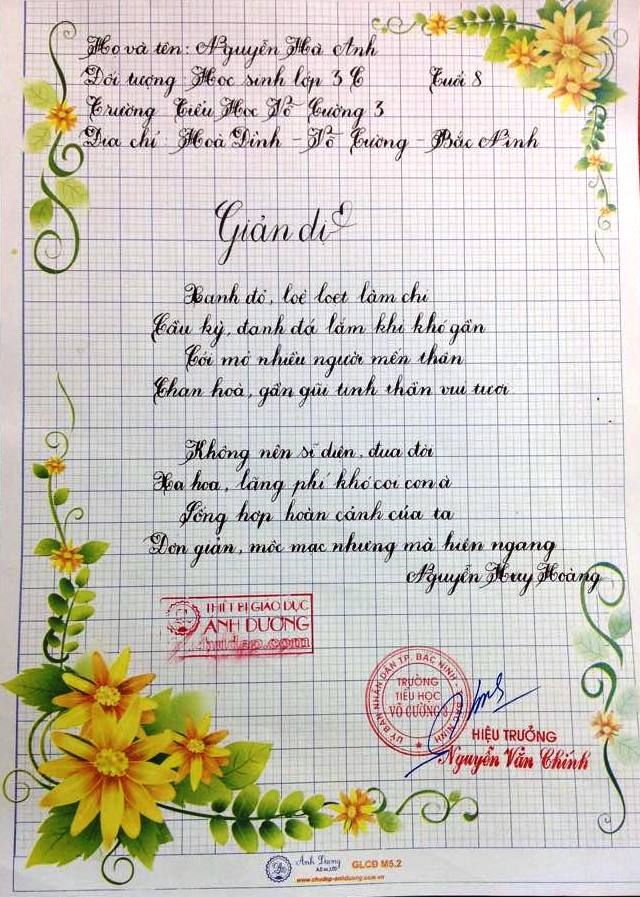 Họ và tên: Nguyễn Hà Anh
Đối tượng Học sinh lớp 3 C Tuổi 8
Trường Tiểu Học Võ Cường 3
Địa chỉ: Hoà Đình - Võ Cường - Bắc Ninh
Giản dị
Xanh đỏ, loè loẹt làm chi
Cầu kỳ, đanh đá lắm khi khó gần
Cởi mở nhiều người mến thân
Chan hoà, gần gũi tinh thần vui tươi
Không nên sĩ diện, đua đòi
Xa hoa, lãng phí khó coi con à
Sống hợp hoàn cảnh của ta
Đơn giản, mộc mạc nhưng mà hiên ngang
Nguyễn Huy Hoàng
THIẾT BỊ GIÁO DỤC
ÁNH DƯƠNG
chudep.com
ỦY BAN NHÂN DÂN TP. BẮC NINH - BẮC NINH
TRƯỜNG
TIỂU HỌC
VÕ CƯỜNG 3
HIỆU TRƯỞNG
Nguyễn Văn Chính
Anh Dương GLCĐ M5.2
www.chudep-anhduong.com.vn